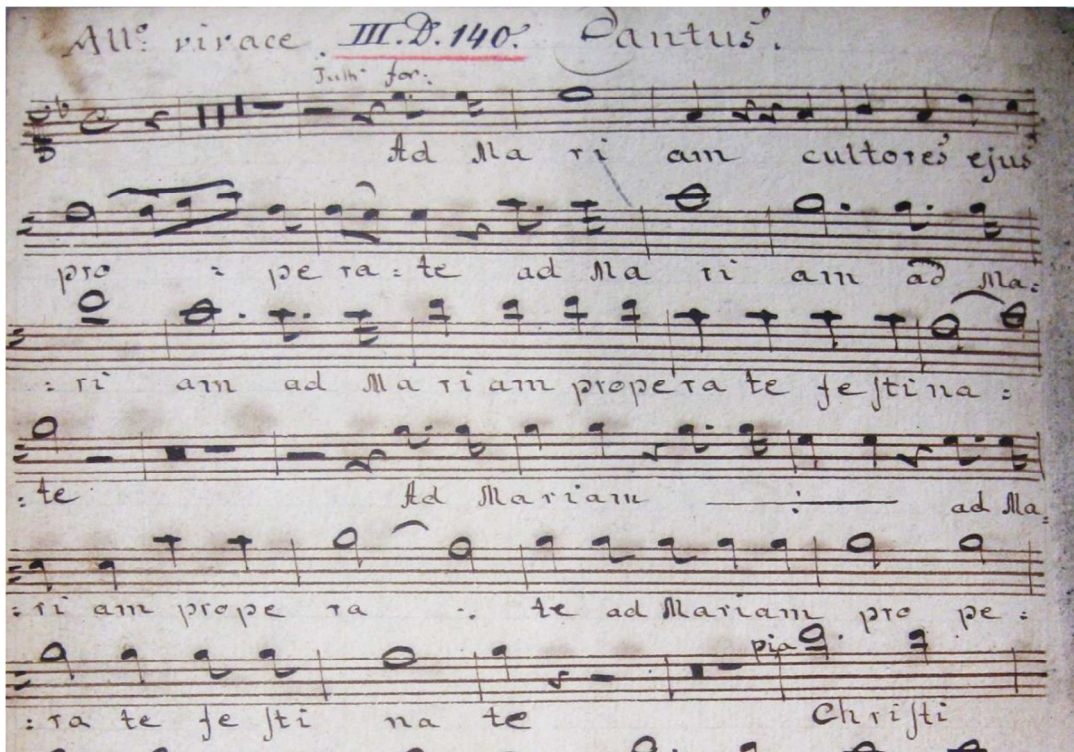 All⁰ vivace. III. D. 140. Cantus.
Tutti for:
Ad Ma ri am cultores ejus
pro = pe ra = te ad Ma ri am ad Ma:
: ri am ad Ma ri am propera te feſtina =
: te Ad Mariam ad Ma:
: ri am prope ra . te ad Mariam pro pe :
pia
: ra te fe ſti na te Chriſti